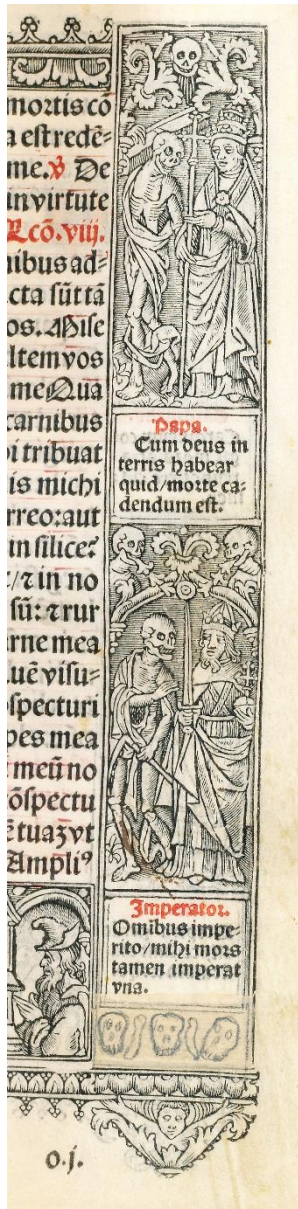 mortis cō
a est redē⸗
me.℣ De
in virtute
Lcō.viij.
nibus ad⸗
cta sūt tā
os. Mise
ltem vos
me Qua
carnibus
i tribuat
is michi
rreo:aut
in silice?
/⁊ in no
sū: ⁊ rur
rne mea
uē visu⸗
specturi
pes mea
meū no
ōspectu
ē tuaʒ vt
Ampliꝰ
Papa.
Cum deus in
terris habear
quid/morte ca⸗
dendum est.
Imperator.
Omibus impe⸗
rito/mihi mors
tamen imperat
vna.
o.j.